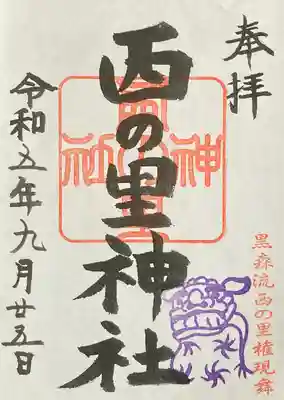 奉拝
西の里神社
令和五年九月廿五日
黒森流西の里権現舞
神社